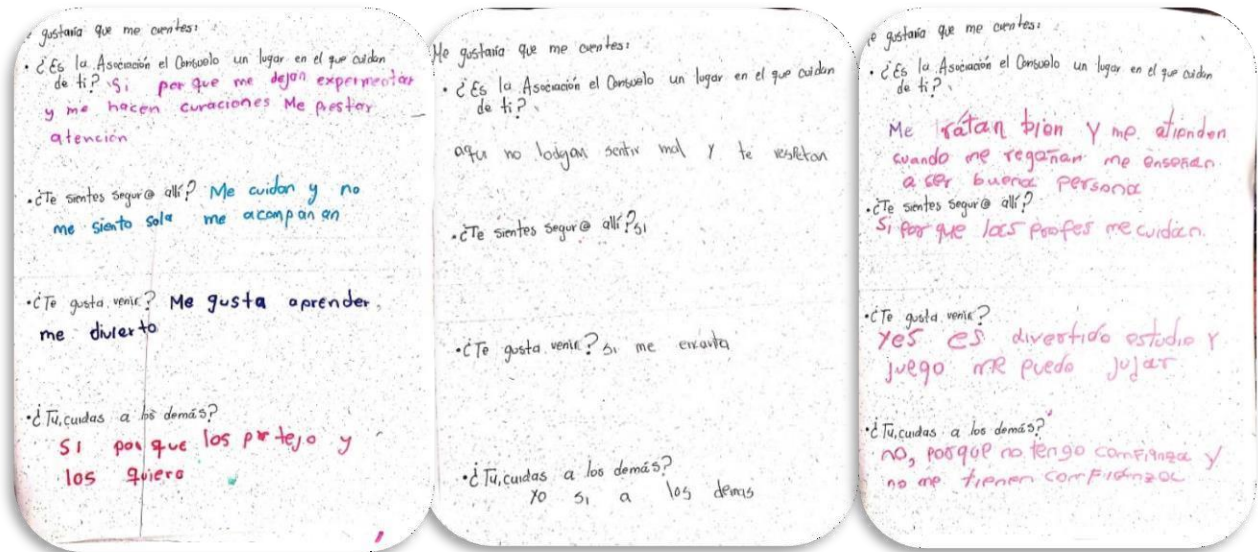 gustaria que me cuentes:
• ¿Es la Asociación el Consuelo un lugar en el que cuidan
de ti? Si por que me dejan experimentar
y me hacen curaciones Me prestan
atención
• ¿Te sientes segur@ allí? Me cuidan y no
me siento sola me acompañan
• ¿Te gusta venir? Me gusta aprender,
me divierto
• ¿Tu, cuidas a los demás?
SI por que los protejo y
los quiero
Me gustaria que me cuentes:
• ¿Es la Asociación el Consuelo un lugar en el que cuidan
de ti?
aqui no sentir mal y te respetan
• ¿Te sientes segur@ allí? si
• ¿Te gusta venir? si me encanta
• ¿Tu, cuidas a los demás?
Yo si a los demas
e gustaria que me cuentes:
• ¿Es la Asociación el Consuelo un lugar en el que cuidan
de ti?
Me tratan bien Y me atienden
cuando me regañan me enseñan
a ser buena persona
• ¿Te sientes segur@ allí?
Si por que las profes me cuidan.
• ¿Te gusta venir?
yes es divertido estudio Y
juego me puedo jujar
• ¿Tu, cuidas a los demás?
no, porque no tengo comfianza y
no me tienen comfianza